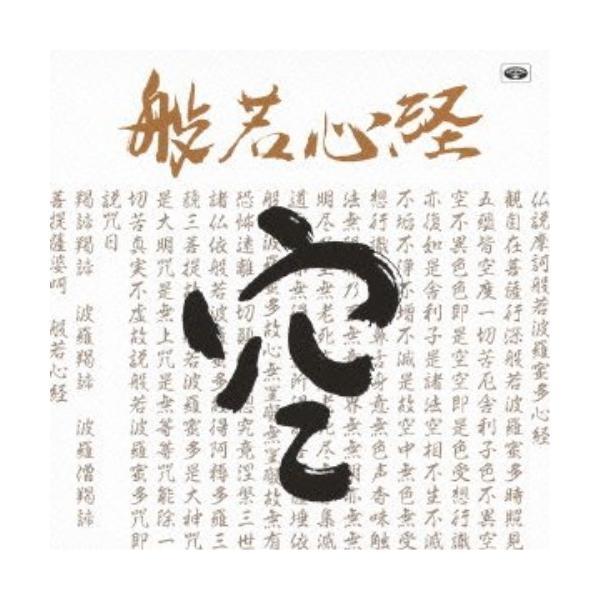 般若心経
空
仏説摩訶般若波羅蜜多心経
観自在菩薩行深般若波羅蜜多時照見
五蘊皆空度一切苦厄舎利子色不異空
空不異色色即是空空即是色受想行識
亦復如是舎利子是諸法空相不生不滅
不垢不浄不増不減是故空中無色無受
想行識 鼻舌身意無色声香味触
法無 乃 無 界無無明亦無無
明尽 至無老死 尽 集滅
道 無 得 所得 薩埵依
般若波羅蜜多故心無罣礙無罣礙故無有
恐怖遠離一切顛 想究竟涅槃三世
諸仏依般若波羅蜜多故得阿耨多羅三
藐三菩提故 般若波羅蜜多是大神咒
是大明咒是無上咒是無等等咒能除一
切苦真実不虚故説般若波羅蜜多咒即
説咒曰
羯諦羯諦 波羅羯諦 波羅僧羯諦
菩提薩婆呵 般若心経